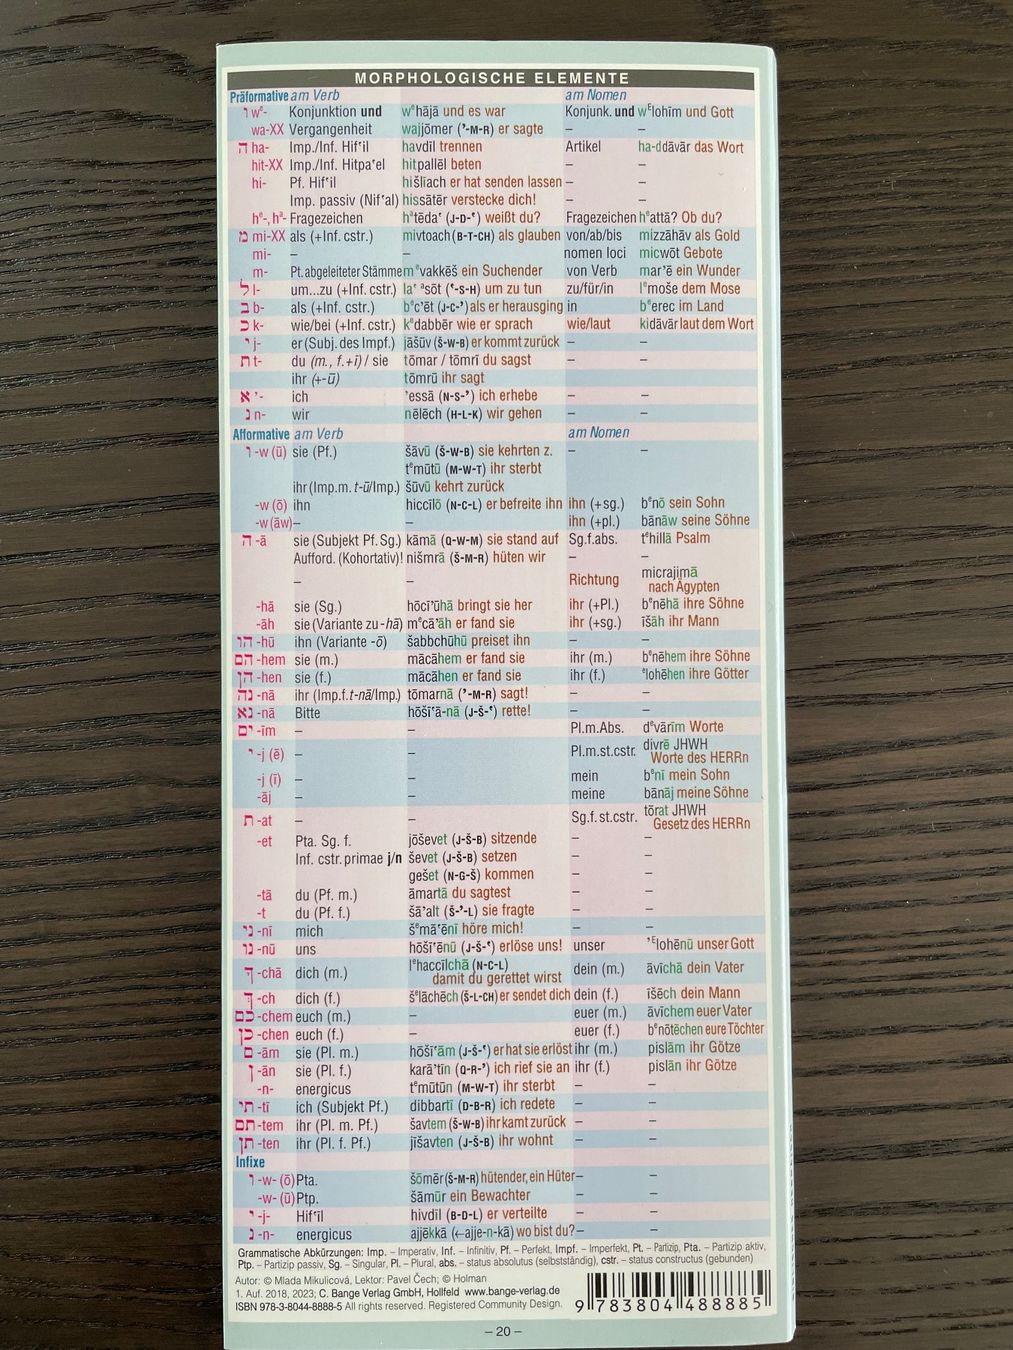 MORPHOLOGISCHE ELEMENTE
Präformative am Verb am Nomen
ו wᵉ- Konjunktion und wᵉhājā und es war Konjunk. und wᴱlohīm und Gott
wa-XX Vergangenheit wajjōmer (’-M-R) er sagte – –
ה ha- Imp./Inf. Hifʿil havdīl trennen Artikel ha-ddāvār das Wort
hit-XX Imp./Inf. Hitpaʿel hitpallēl beten – –
hi- Pf. Hifʿil hišlīach er hat senden lassen – –
Imp. passiv (Nifʿal) hissātēr verstecke dich! – –
hᵉ-, hᵃ- Fragezeichen hᵃtēdaʿ (J-D-ʿ) weißt du? Fragezeichen hᵉattā? Ob du?
מ mi-XX als (+Inf. cstr.) mivtoach (B-T-CH) als glauben von/ab/bis mizzāhāv als Gold
mi- – – nomen loci micwōt Gebote
m- Pt. abgeleiteter Stämme mᵉvakkēš ein Suchender von Verb mar’ē ein Wunder
ל l- um...zu (+Inf. cstr.) laʿ ᵃsōt (ʿ-S-H) um zu tun zu/für/in lᵉmoše dem Mose
ב b- als (+Inf. cstr.) bᵉc’ēt (J-C-’) als er herausging in bᵉerec im Land
כ k- wie/bei (+Inf. cstr.) kᵉdabbēr wie er sprach wie/laut kidāvār laut dem Wort
י j- er (Subj. des Impf.) jāšūv (Š-W-B) er kommt zurück – –
ת t- du (m., f.+ī) / sie tōmar / tōmrī du sagst – –
ihr (+-ū) tōmrū ihr sagt
א ’- ich ’essā (N-S-’) ich erhebe – –
נ n- wir nēlēch (H-L-K) wir gehen – –
Afformative am Verb am Nomen
ו -w (ū) sie (Pf.) šāvū (Š-W-B) sie kehrten z. – –
tᵉmūtū (M-W-T) ihr sterbt
ihr (Imp.m. t-ū/Imp.) šūvū kehrt zurück
-w (ō) ihn hiccīlō (N-C-L) er befreite ihn ihn (+sg.) bᵉnō sein Sohn
-w (āw) – – ihn (+pl.) bānāw seine Söhne
ה -ā sie (Subjekt Pf. Sg.) kāmā (Q-W-M) sie stand auf Sg.f.abs. tᵉhillā Psalm
Aufford. (Kohortativ)! nišmrā (Š-M-R) hüten wir – –
– – Richtung micrajimā
nach Ägypten
-hā sie (Sg.) hōcī’ūhā bringt sie her ihr (+Pl.) bᵉnēhā ihre Söhne
-āh sie (Variante zu -hā) mᵉcā’āh er fand sie ihr (+sg.) īšāh ihr Mann
הו -hū ihn (Variante -ō) šabbchūhū preiset ihn – –
הם -hem sie (m.) mācāhem er fand sie ihr (m.) bᵉnēhem ihre Söhne
הן -hen sie (f.) mācāhen er fand sie ihr (f.) ᵉlohēhen ihre Götter
נה -nā ihr (Imp.f.t-nā/Imp.) tōmarnā (’-M-R) sagt! – –
נא -nā Bitte hōšīʿā-nā (J-Š-ʿ) rette! – –
ים -īm – – Pl.m.Abs. dᵉvārīm Worte
י -j (ē) – – Pl.m.st.cstr. divrē JHWH
Worte des HERRn
-j (ī) – – mein bᵉnī mein Sohn
-āj – – meine bānāj meine Söhne
ת -at – – Sg.f. st.cstr. tōrat JHWH
Gesetz des HERRn
-et Pta. Sg. f. jōševet (J-Š-B) sitzende – –
Inf. cstr. primae j/n ševet (J-Š-B) setzen – –
gešet (N-G-Š) kommen – –
-tā du (Pf. m.) āmartā du sagtest – –
-t du (Pf. f.) šā’alt (Š-’-L) sie fragte – –
ני -nī mich šᵉmāʿēnī höre mich! – –
נו -nū uns hōšīʿēnū (J-Š-ʿ) erlöse uns! unser ’ᴱlohēnū unser Gott
ך -chā dich (m.) lᵉhaccīlchā (N-C-L)
damit du gerettet wirst dein (m.) āvīchā dein Vater
ך -ch dich (f.) šᵉlāchēch (Š-L-CH) er sendet dich dein (f.) īšēch dein Mann
כם -chem euch (m.) – euer (m.) āvīchem euer Vater
כן -chen euch (f.) – euer (f.) bᵉnōtēchen eure Töchter
ם -ām sie (Pl. m.) hōšīʿām (J-Š-ʿ) er hat sie erlöst ihr (m.) pislām ihr Götze
ן -ān sie (Pl. f.) karā’tīn (Q-R-’) ich rief sie an ihr (f.) pislān ihr Götze
-n- energicus tᵉmūtūn (M-W-T) ihr sterbt – –
תי -tī ich (Subjekt Pf.) dibbartī (D-B-R) ich redete – –
תם -tem ihr (Pl. m. Pf.) šavtem (Š-W-B) ihr kamt zurück – –
תן -ten ihr (Pl. f. Pf.) jīšavten (J-Š-B) ihr wohnt – –
Infixe
ו -w- (ō) Pta. šōmēr (Š-M-R) hütender, ein Hüter – –
-w- (ū) Ptp. šāmūr ein Bewachter – –
י -j- Hifʿīl hivdīl (B-D-L) er verteilte – –
נ -n- energicus ajjēkkā (←ajje-n-kā) wo bist du? – –
Grammatische Abkürzungen: Imp. – Imperativ, Inf. – Infinitiv, Pf. – Perfekt, Impf. – Imperfekt, Pt. – Partizip, Pta. – Partizip aktiv,
Ptp. – Partizip passiv, Sg. – Singular, Pl. – Plural, abs. – status absolutus (selbstständig), cstr. – status constructus (gebunden)
Autor: © Mlada Mikulicová, Lektor: Pavel Čech; © Holman
1. Auf. 2018, 2023; C. Bange Verlag GmbH, Hollfeld www.bange-verlag.de
ISBN 978-3-8044-8888-5 All rights reserved. Registered Community Design.
9 783804 488885
– 20 –